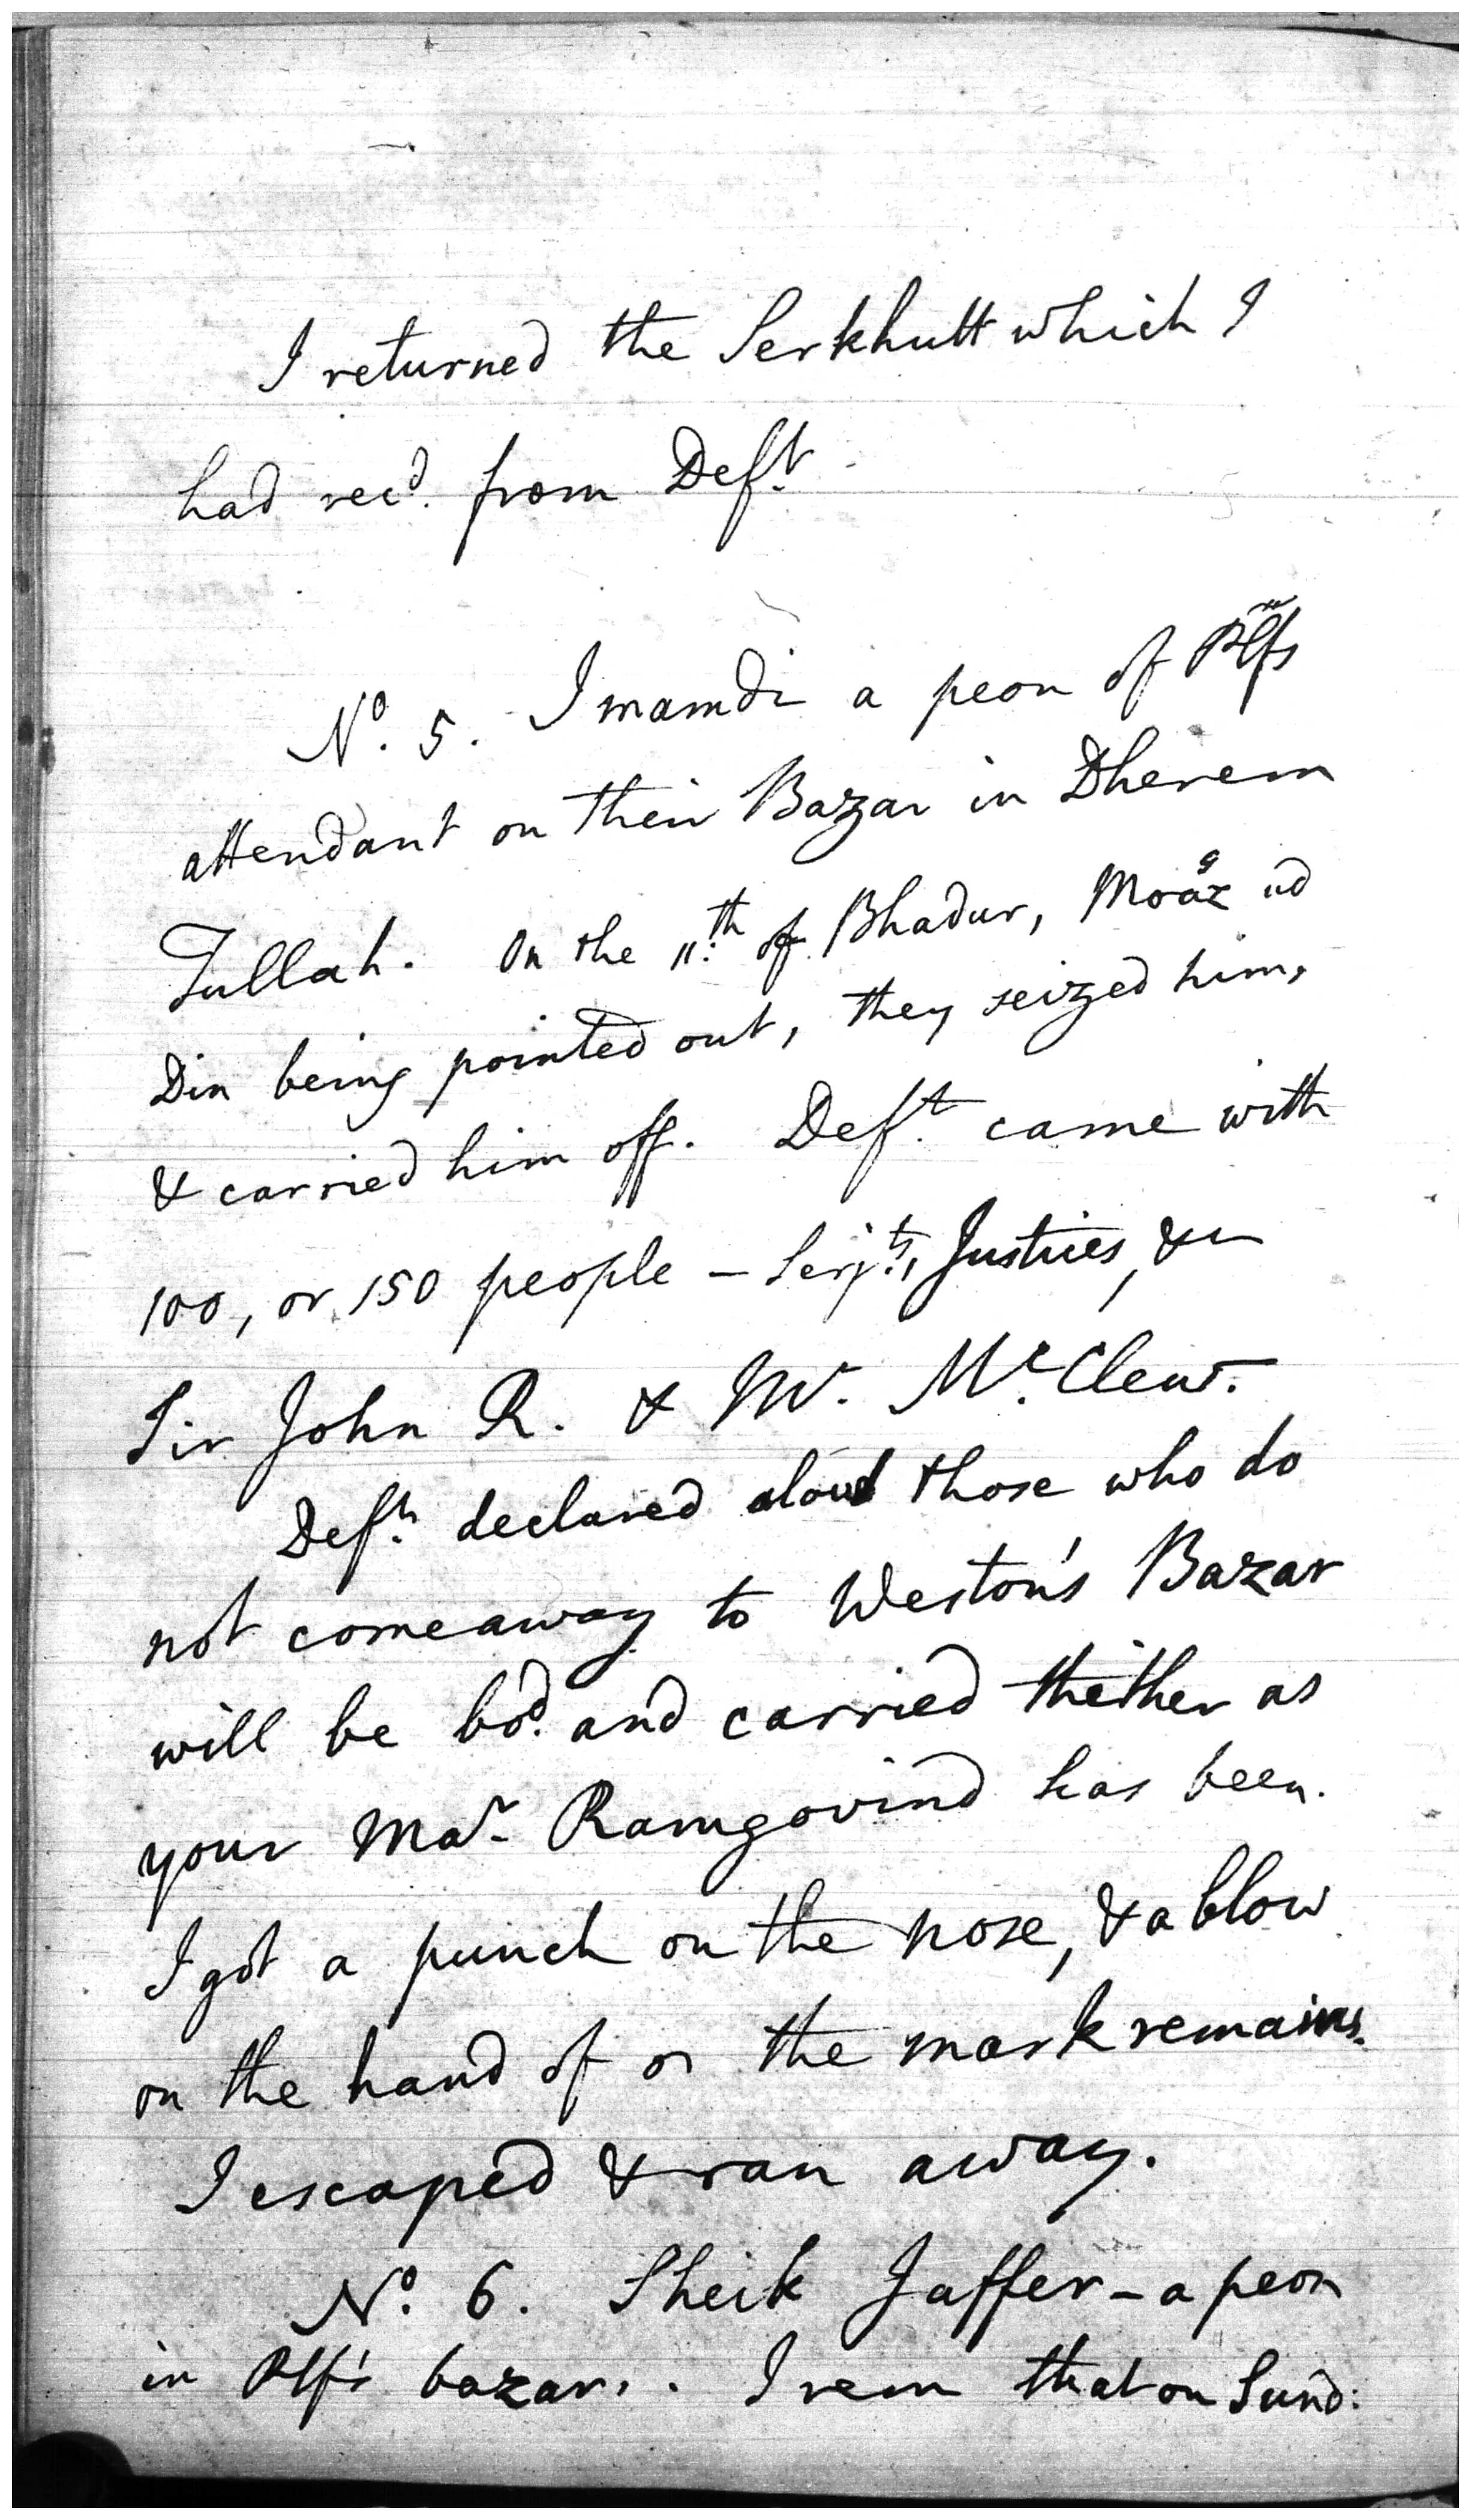 I returned the Serkhutt which I
had recd. from Deft.
No. 5. Imamdi a peon of Plfs
attendant on their Bazar in Dherem
Tullah. On the 11th. of Bhadur, Moaz ud
Din being pointed out, they seized him,
& carried him off. Deft. came with
100, or 150 people - Serjts., Justices, &c
Sir John R. & Mr. Mc. Clew.
Deft. declared aloud those who do
not come away to Weston's Bazar
will be bod. and carried theither as
your Mar. Ramgovind has been.
I got a punch on the nose, & a blow
on the hand of the mark remains.
I escaped & ran away.
No. 6. Sheik Jaffer - a peon
in Plf's bazar. . I rem that on Sund: